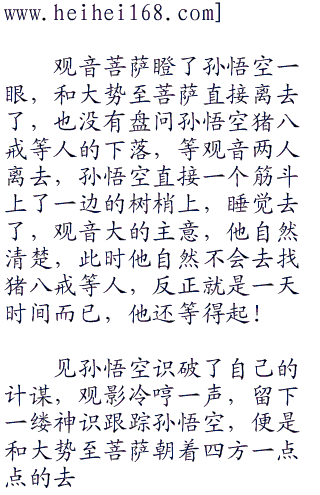 www.heihei168.com]
观音菩萨瞪了孙悟空一
眼，和大势至菩萨直接离去
了，也没有盘问孙悟空猪八
戒等人的下落，等观音两人
离去，孙悟空直接一个筋斗
上了一边的树梢上，睡觉去
了，观音大的主意，他自然
清楚，此时他自然不会去找
猪八戒等人，反正就是一天
时间而已，他还等得起！
见孙悟空识破了自己的
计谋，观影冷哼一声，留下
一缕神识跟踪孙悟空，便是
和大势至菩萨朝着四方一点
点的去